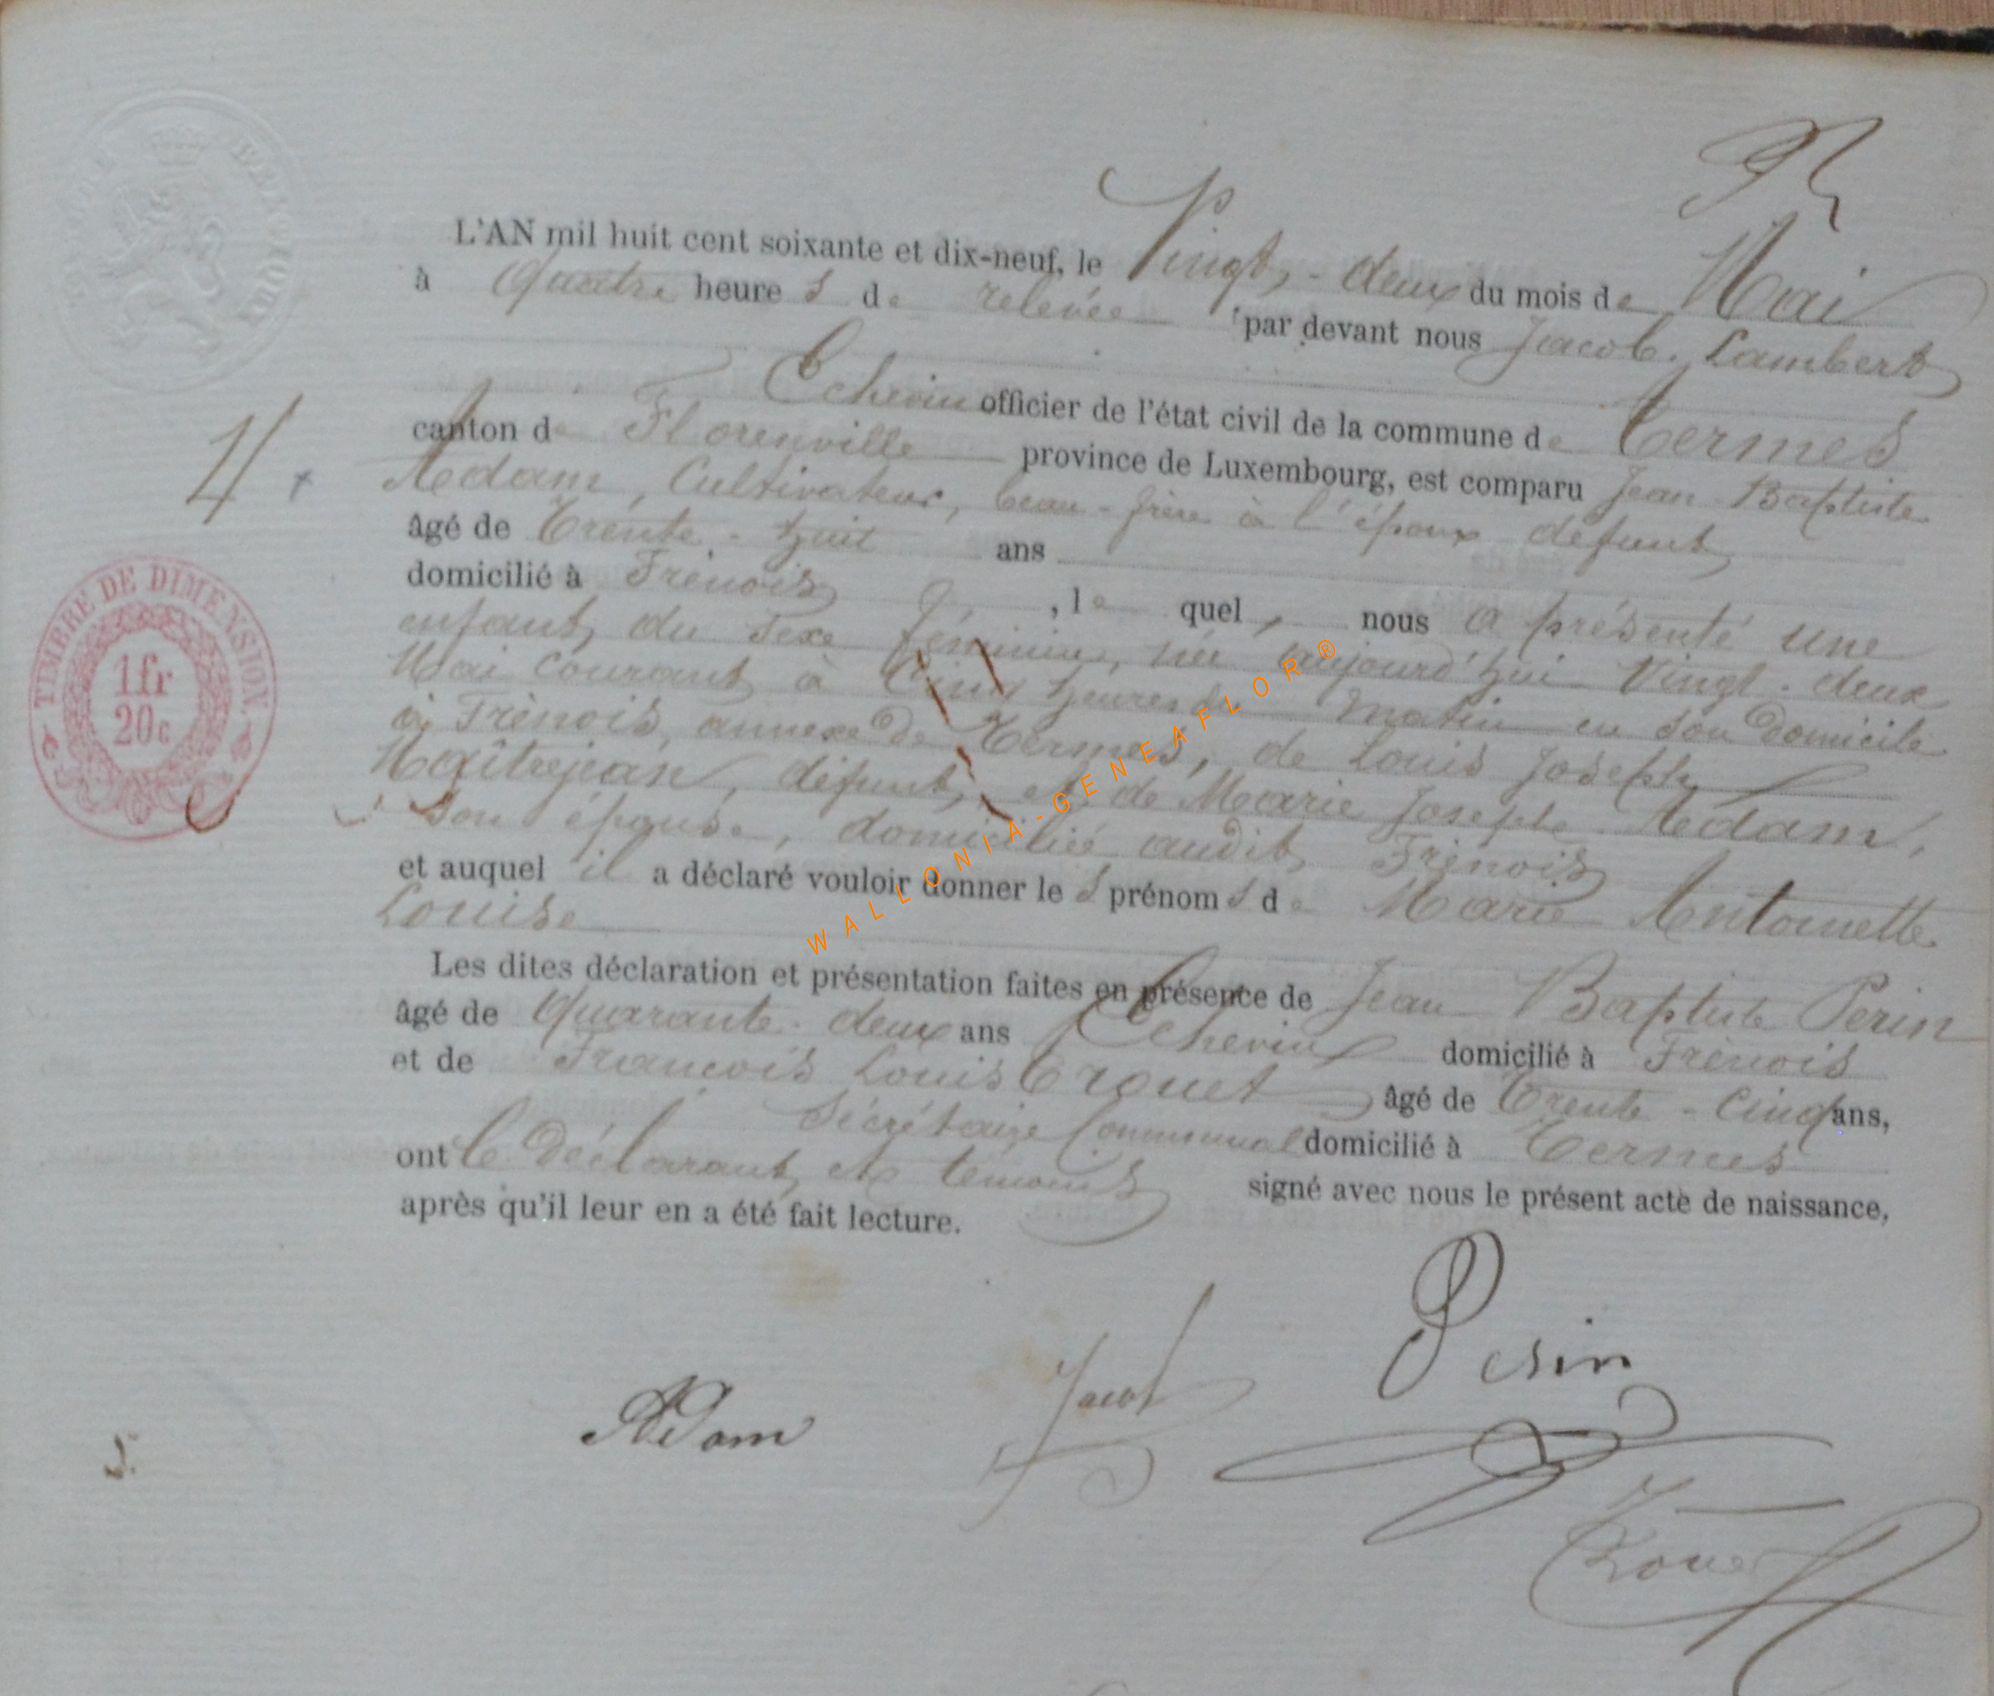 L'AN mil huit cent soixante et dix-neuf, le Vingt-deux du mois de Mai
à Quatre heures de relevée par devant nous Jacob Lambert
Echevin officier de l'état civil de la commune de Termes
canton de Florenville province de Luxembourg, est comparu Jean Baptiste
Adam, Cultivateur, beau-frère à l'époux défunt
âgé de Trente-huit ans
domicilié à Frènois, lequel, nous a présenté une
enfant du sexe féminin, née aujourd'hui Vingt-deux
Mai courant à Cinq heures du matin en son domicile
à Frènois, annexe de Termes, de Louis Joseph
Maîtrejean, défunt, et de Marie Joseph Adam,
son épouse, domiciliée audit Frènois
et auquel il a déclaré vouloir donner les prénoms de Marie Antoinette
Louise
Les dites déclaration et présentation faites en présence de Jean Baptiste Perin
âgé de Quarante-deux ans Echevin domicilié à Frènois
et de François Louis Trouet âgé de Trente-Cinq ans,
Sécrétaire Communal domicilié à Termes
ont le déclarant et témoins signé avec nous le présent acte de naissance,
après qu'il leur en a été fait lecture.
Adam Jacob Perin
Trouet
4
TIMBRE DE DIMENSION.
1fr
20c
WALLONIA-GENEAFLOR®